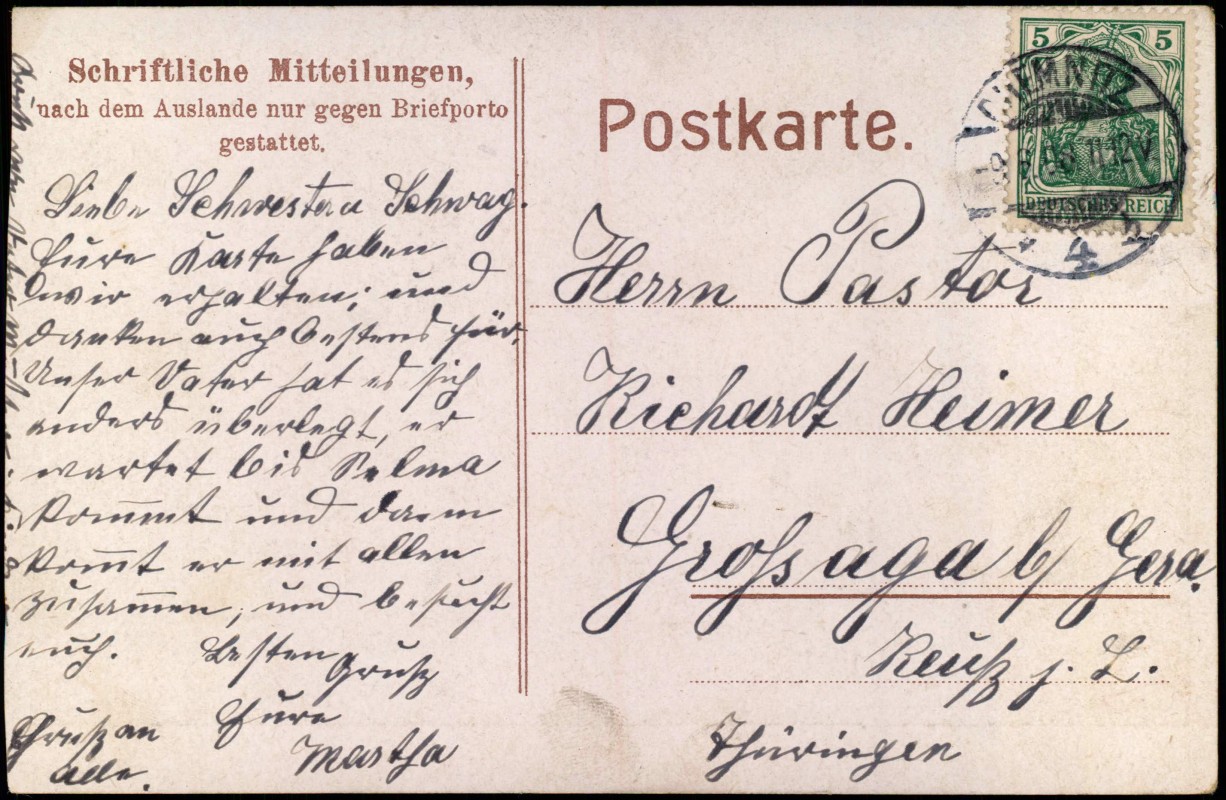 Schriftliche Mitteilungen,
nach dem Auslande nur gegen Briefporto
gestattet.
Liebe Schwester u Schwag.
Eure Karte haben
wir erhalten, und
danken auch bestens für.
Unser Vater hat es sich
anders überlegt, er
wartet bis Selma
kommt und dann
kommt er mit allen
zusammen, und besucht
euch. Besten Gruß
Eure
Martha
Gruß an
alle.
Postkarte.
5 5
CHEMNITZ
11-12V
DEUTSCHES REICH
* 4 b
Herrn Pastor
Richardt Heimer
Grossaga b/ Gera.
Reuß j. L.
Thüringen